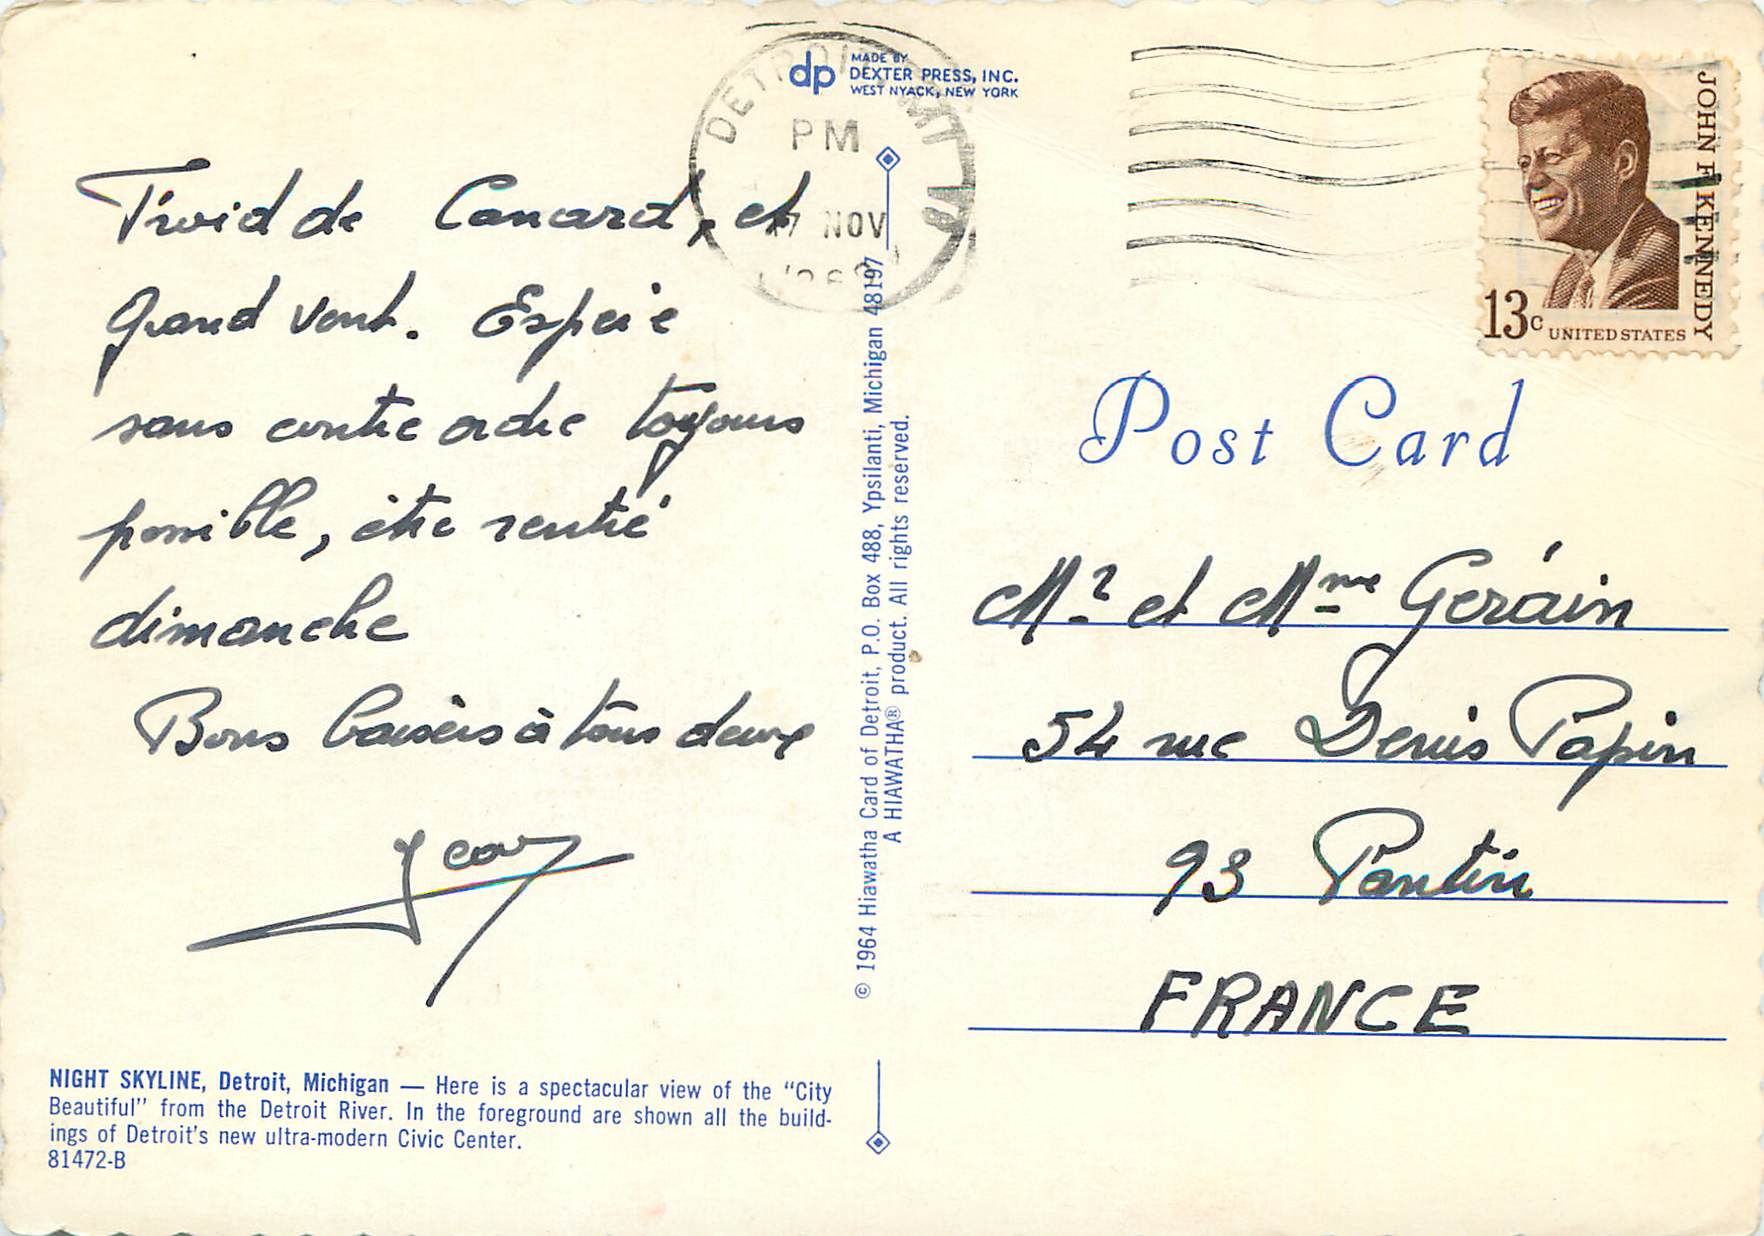 DETROIT, MI
PM
17 NOV
dp MADE BY
DEXTER PRESS, INC.
WEST NYACK, NEW YORK
JOHN F. KENNEDY
13c UNITED STATES
Froid de Canard, et
grand vent. Espère
sans contre ordre toujours
possible, être rentré
dimanche
Bons baisers à tous deux
Jean
© 1964 Hiawatha Card of Detroit, P.O. Box 488, Ypsilanti, Michigan 48197
A HIAWATHA® product. All rights reserved.
Post Card
Mr et Mme Geráin
54 rue Denis Papin
93 Pantin
FRANCE
NIGHT SKYLINE, Detroit, Michigan — Here is a spectacular view of the "City
Beautiful" from the Detroit River. In the foreground are shown all the build-
ings of Detroit's new ultra-modern Civic Center.
81472-B